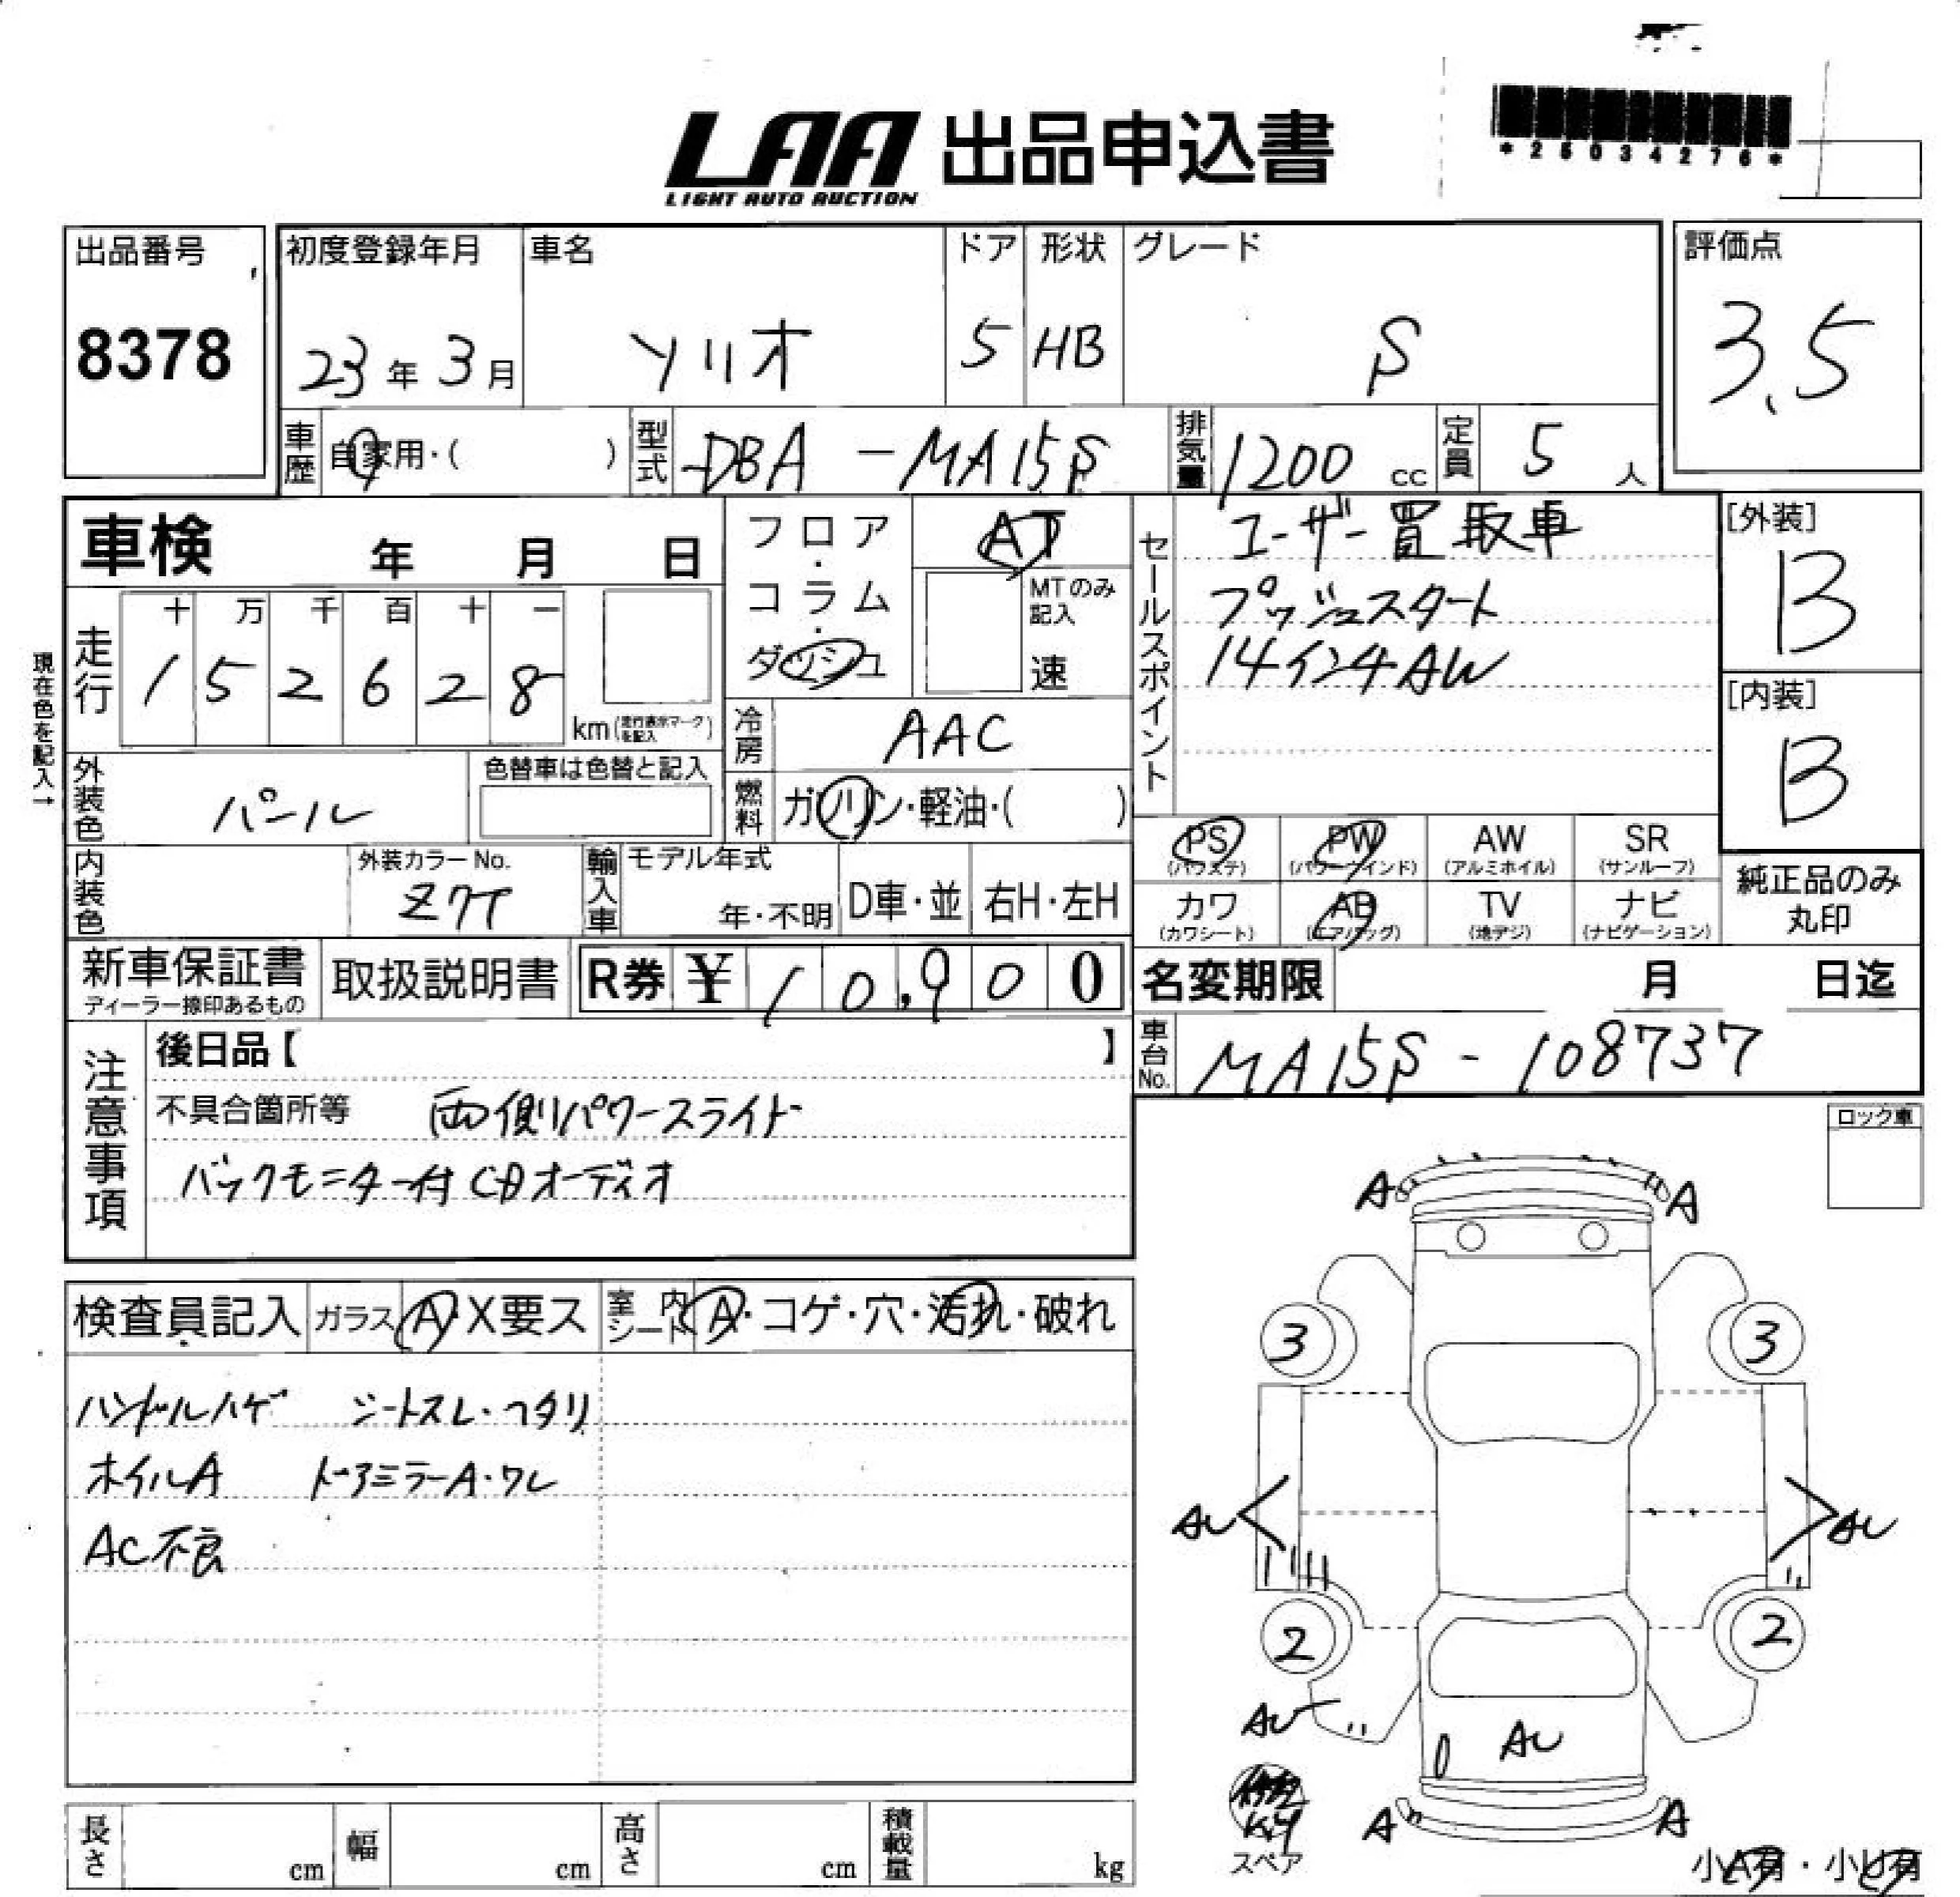 *25034276*
LAA 出品申込書
LIGHT AUTO AUCTION
出品番号
8378
初度登録年月
23年3月
車名
ソリオ
ドア
5
形状
HB
グレード
S
評価点
3.5
車歴
自家用・( )
型式
DBA-MA15S
排気量
1200cc
定員
5人
車検 年 月 日
フロア・コラム・ダッシュ
AT
MTのみ記入
速
セールスポイント
ユーザー買取車
プッシュスタート
14インチAW
[外装]
B
[内装]
B
現在色を記入→
走行
十 万 千 百 十 一
1 5 2 6 2 8
km(走行表示マークを記入)
冷房
AAC
外装色
パール
色替車は色替と記入
燃料
ガソリン・軽油・( )
PS (パワステ)
PW (パワーウインド)
AW (アルミホイル)
SR (サンルーフ)
カワ (カワシート)
AB (エアバッグ)
TV (地デジ)
ナビ (ナビゲーション)
純正品のみ
丸印
内装色
外装カラーNo.
Z7T
輸入車
モデル年式
年・不明
D車・並
右H・左H
新車保証書
ディーラー捺印あるもの
取扱説明書
R券 ¥10,900
名変期限 月 日迄
車台No.
MA15S-108737
注意事項
後日品【 】
不具合箇所等 両側パワースライド
バックモニター付CDオーディオ
ロック車
検査員記入
ガラス A・X要ス
室内シート A・コゲ・穴・汚れ・破れ
ハンドルハゲ シートスレ・ヘタリ
ホイルA ドアミラーA・ワレ
AC不良
A A
3 3
AU AU
2 2
AU
AU
A A
スペア
小A有・小U有
長さ cm
幅 cm
高さ cm
積載量 kg